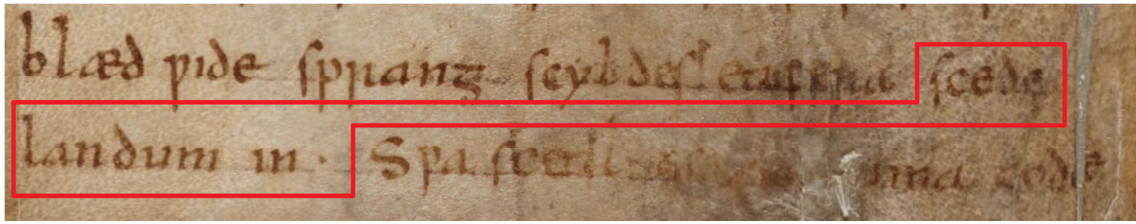 blæd ƿide sprang scyldes eafera scede
landum in· Sƿa sceal